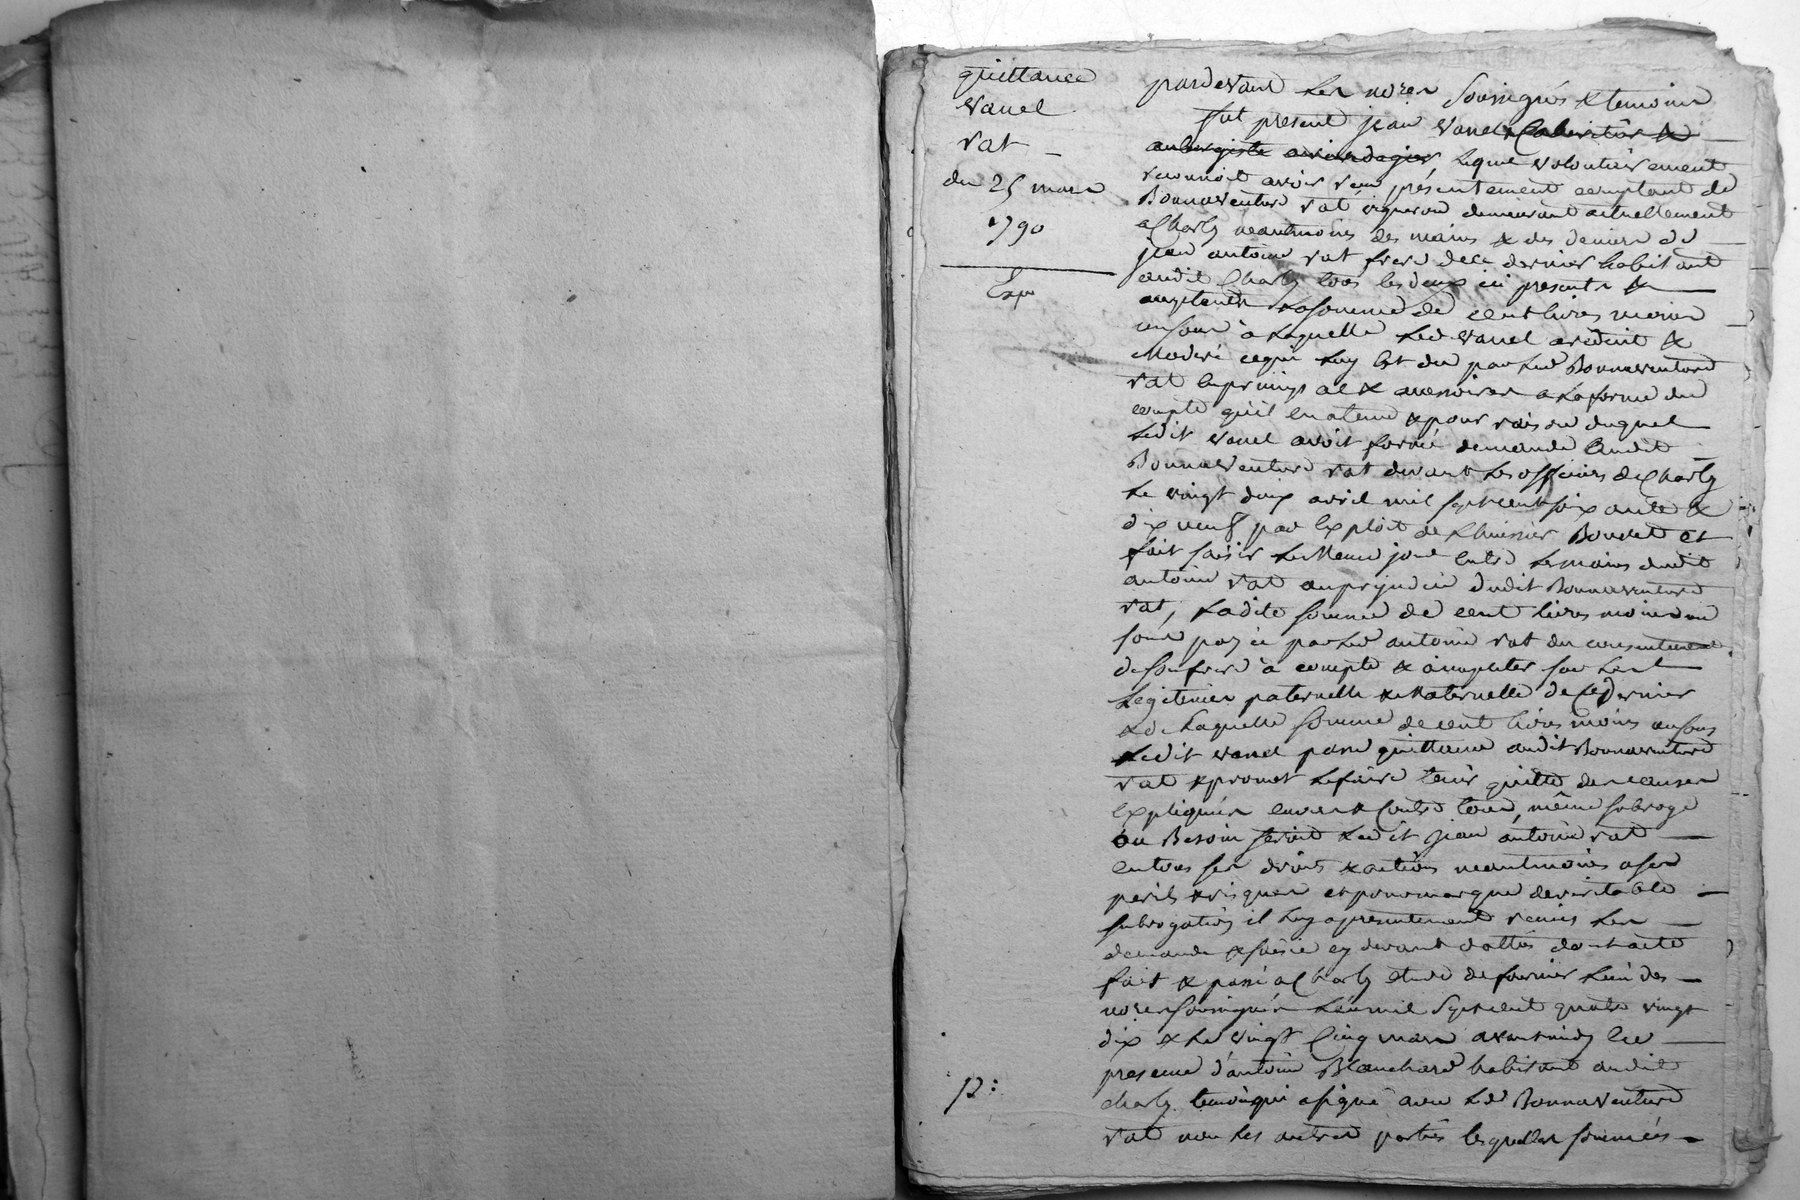 quittance
vanel
rat
du 25 mars
1790
Exp
pardevant les nores soussignés & temoins
fut present jean vanel cabaretier &
aubergiste lequel volontairement
reconnoit avoir recu présentement comptant de
Bonnaventure rat vigneron demeurant actuellement
a Charly neantmoins des mains & des deniers de
jean antoine rat frere de ce dernier habitant
audit Charly tous les deux ici presents &
acceptants la somme de cent livres moins
un sous à laquelle led vanel a réduit &
moderé ce qui luy est du par led Bonnaventure
rat en principal & accessoires a la forme du
compte qu'il en a tenu & pour raison duquel
ledit vanel avoit formé demande audit
Bonnaventure rat devant les officiers de Charly
le vingt deux avril mil sept cent soixante &
dix neuf par exploit de l'huissier Bouvet et
fait saisir le meme jour entre les mains dudit
antoine rat au prejudice dudit Bonnaventure
rat, ladite somme de cent livres moins un
sous payée par led antoine rat du consentement
de son frere à compte & à imputer sur les
legitimes paternelle & maternelle de ce dernier
& de laquelle somme de cent livres moins un sous
ledit vanel passe quittance audit Bonnaventure
rat & promet le faire tenir quitte des causes
expliquées envers & contre tous, même subroge
au Besoin seroit ledit jean antoine rat
en tous ses droits & actions neantmoins a ses
perils & risques et pour marque de veritable
subrogation il luy a presentement remis les
demande & saisie cy devant dattés dont acte
fait & passé a Charly etude de fournier l'un des
nores soussignés l'an mil sept cent quatre vingt
dix & le vingt cinq mars avant midy en
presence d'antoine Blanchard habitant audit
charly temoin qui a signé avec led Bonnaventure
rat non les autres parties lesquelles sommées
p: